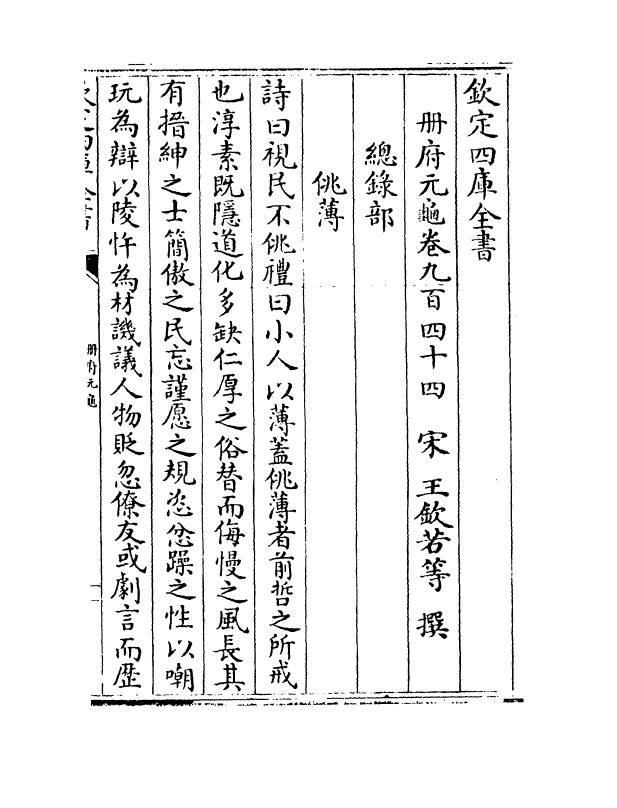 欽定四庫全書
册府元龜卷九百四十四 宋 王欽若等 撰
總錄部
佻薄
詩曰視民不佻禮曰小人以薄蓋佻薄者前哲之所戒
也淳素既隱道化多缺仁厚之俗替而侮慢之風長其
有搢紳之士簡傲之民忘謹愿之規恣忿躁之性以嘲
玩為辯以陵忤為材譏議人物貶忽僚友或劇言而歷
册府元龜